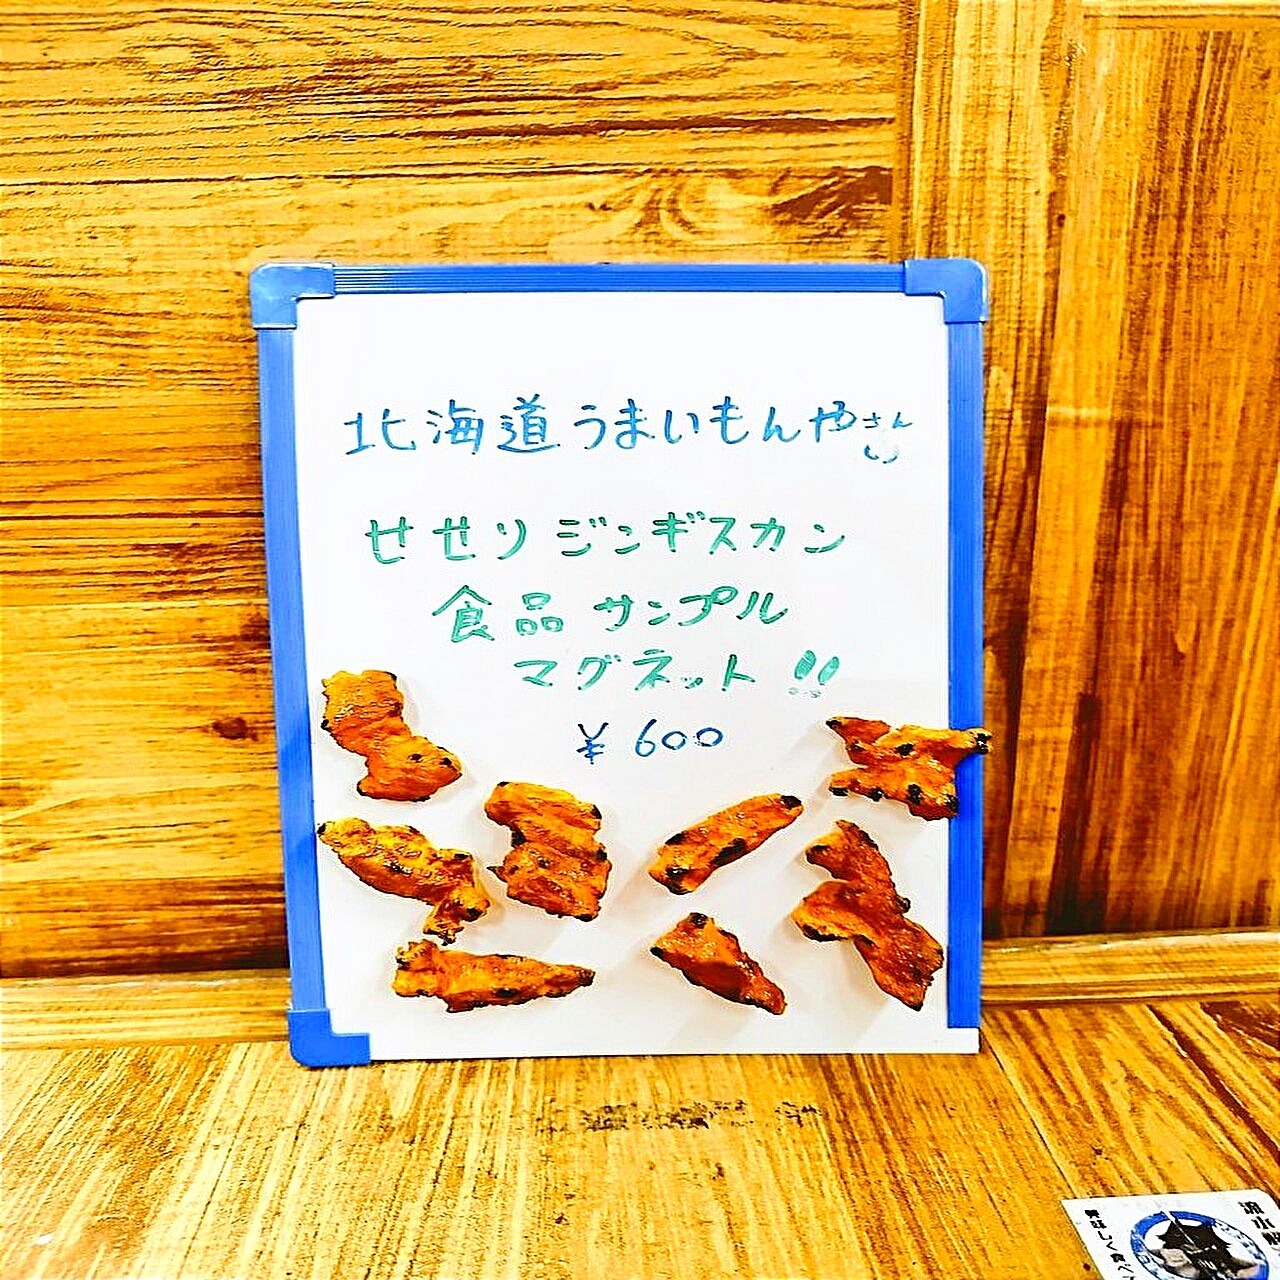 北海道うまいもんやさん
せせりジンギスカン
食品サンプル
マグネット!!
¥600